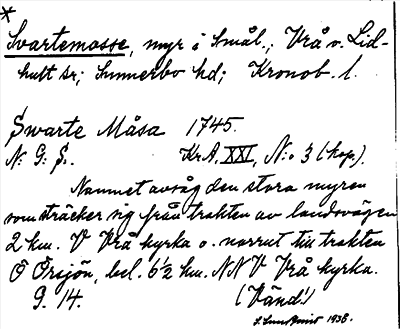 *
Svartemosse, myr i Smål.; Vrå o. Lid-
hult sr; Sunnerbo hd; Kronob. l.
Swarte Måsa 1745.
N: G: S. Kr.A. XXI, N:o 3 (kop.).
Namnet avsåg den stora myren
som sträcker sig från trakten av landsvägen
2 km. V Vrå kyrka o. norrut till trakten
Ö Örsjön, bel. 6½ km. NNV Vrå kyrka.
G. 14. (Vänd!)
1938.